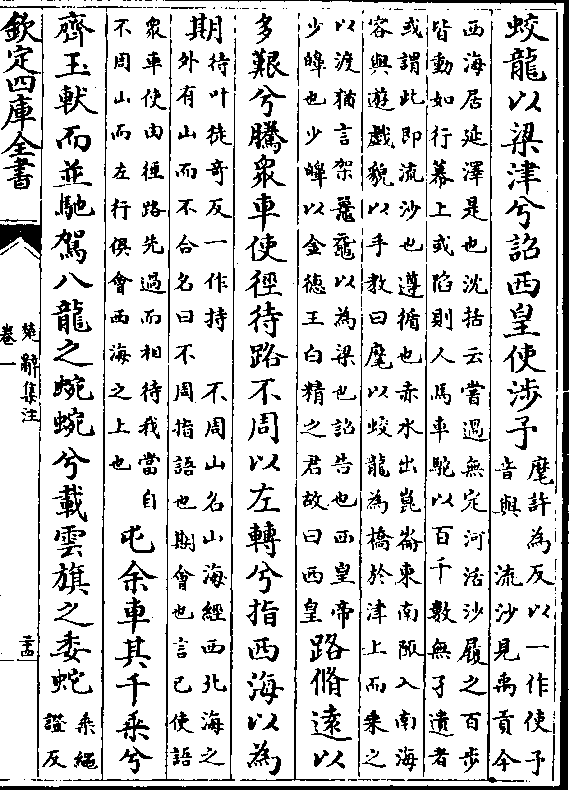 蛟龍以梁津兮詔西皇使涉予
麾許為反以一作使予
音與 流沙見禹貢今
西海居延澤是也沈括云嘗過無定河活沙履之百步
皆動如行幕上或陷則人馬車駝以百千數無孑遺者
或謂此即流沙也遵循也赤水出崑崙東南陬入南海
容與遊戲貌以手教曰麾以蛟龍為橋於津上而乗之
以渡猶言架黿鼉以為梁也詔告也西皇帝
少皥也少皥以金德王白精之君故曰西皇
路脩遠以
多艱兮騰衆車使徑待路不周以左轉兮指西海以為
期
待叶徒奇反一作持 不周山名山海經西北海之
外有山而不合名曰不周指語也期會也言已使語
衆車使由徑路先過而相待我當自
不周山而左行俱會西海之上也
屯余車其千乘兮
齊玉軑而並馳駕八龍之蜿蜿兮載雲旗之委蛇
乘繩
證反
欽定四庫全書
楚辭集注
卷一